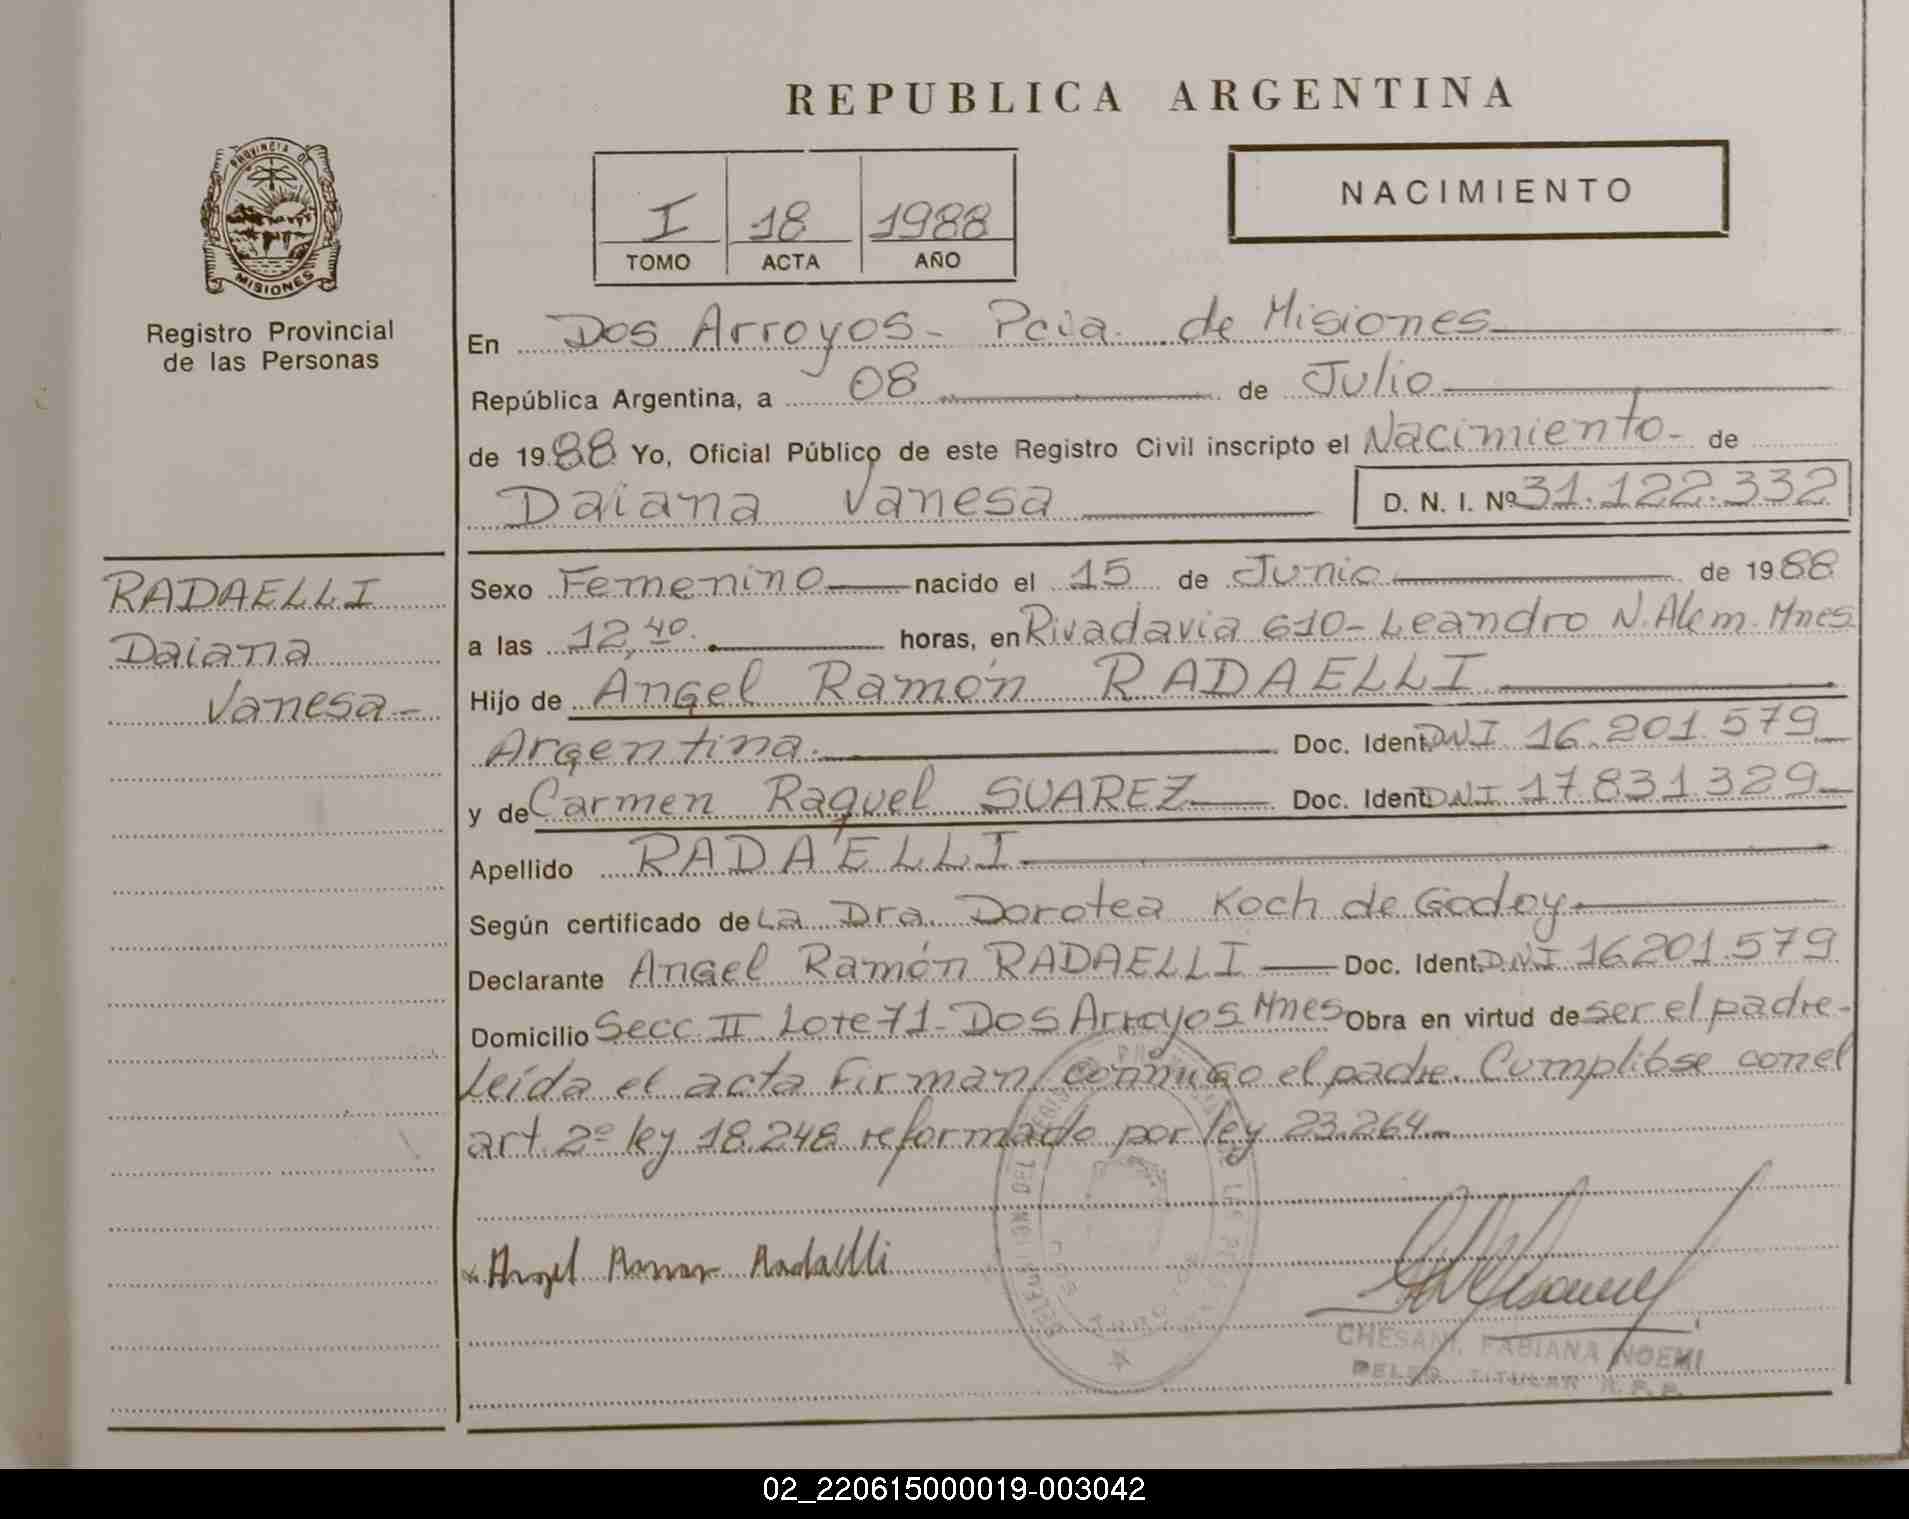 REPUBLICA ARGENTINA
PROVINCIA DE
MISIONES
Registro Provincial
de las Personas
I 18 1988
TOMO ACTA AÑO
NACIMIENTO
En Dos Arroyos - Pcia. de Misiones
República Argentina, a 08 de Julio
de 1988 Yo, Oficial Público de este Registro Civil inscripto el Nacimiento - de
Daiana Vanesa D. N. I. Nº 31.122.332
RADAELLI
Daiana
Vanesa -
Sexo Femenino nacido el 15 de Junio de 1988
a las 12,40. horas, en Rivadavia 610 - Leandro N. Alem. Mnes
Hijo de Angel Ramón RADAELLI
Argentina. Doc. Ident. DNI 16.201.579
y de Carmen Raquel SUAREZ Doc. Ident. DNI 17.831.329
Apellido RADAELLI
Según certificado de La Dra. Dorotea Koch de Godoy
Declarante Angel Ramón RADAELLI Doc. Ident. DNI 16.201.579
Domicilio Secc II Lote 71 - Dos Arroyos Mnes Obra en virtud de ser el padre -
Leída el acta firman conmigo el padre. Cumplióse con el
art. 2º ley 18.248 reformado por ley 23.264
Angel Ramon Radaelli
CHESANI, FABIANA NOEMI
DELEG. TITULAR R. P. P.
02_220615000019-003042